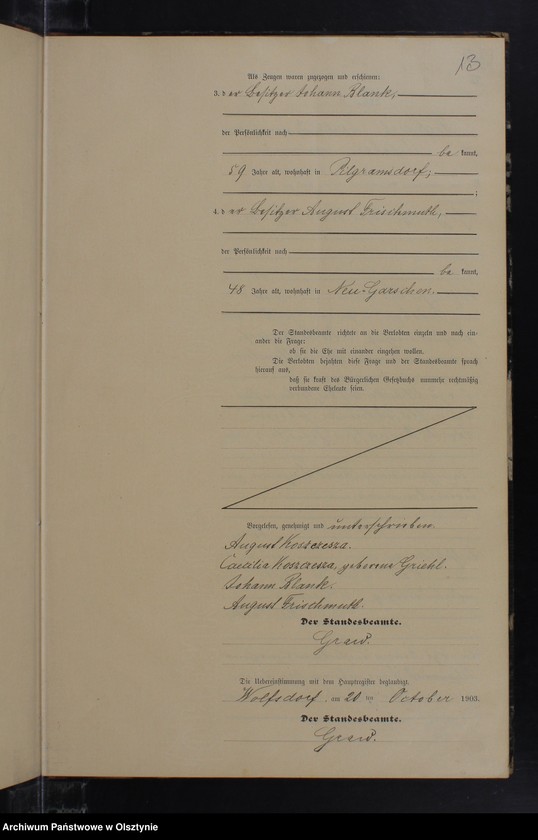 13
Als Zeugen waren zugezogen und erschienen:
3. der Besitzer Johann Blank,
der Persönlichkeit nach
be kannt,
59 Jahre alt, wohnhaft in Pilgramsdorf;
;
4. der Besitzer August Frischmuth,
der Persönlichkeit nach
be kannt,
48 Jahre alt, wohnhaft in Neu-Garschen.
Der Standesbeamte richtete an die Verlobten einzeln und nach ein-
ander die Frage:
ob sie die Ehe mit einander eingehen wollen.
Die Verlobten bejahten diese Frage und der Standesbeamte sprach
hierauf aus,
daß sie kraft des Bürgerlichen Gesetzbuchs nunmehr rechtmäßig
verbundene Eheleute seien.
Vorgelesen, genehmigt und unterschrieben.
August Koszczesza.
Caecilia Koszczesza, geborene Griehl.
Johann Blank.
August Frischmuth.
Der Standesbeamte.
Graw.
Die Uebereinstimmung mit dem Hauptregister beglaubigt.
Wolfsdorf, am 20 ten October 1903.
Der Standesbeamte.
Graw.
Archiwum Państwowe w Olsztynie